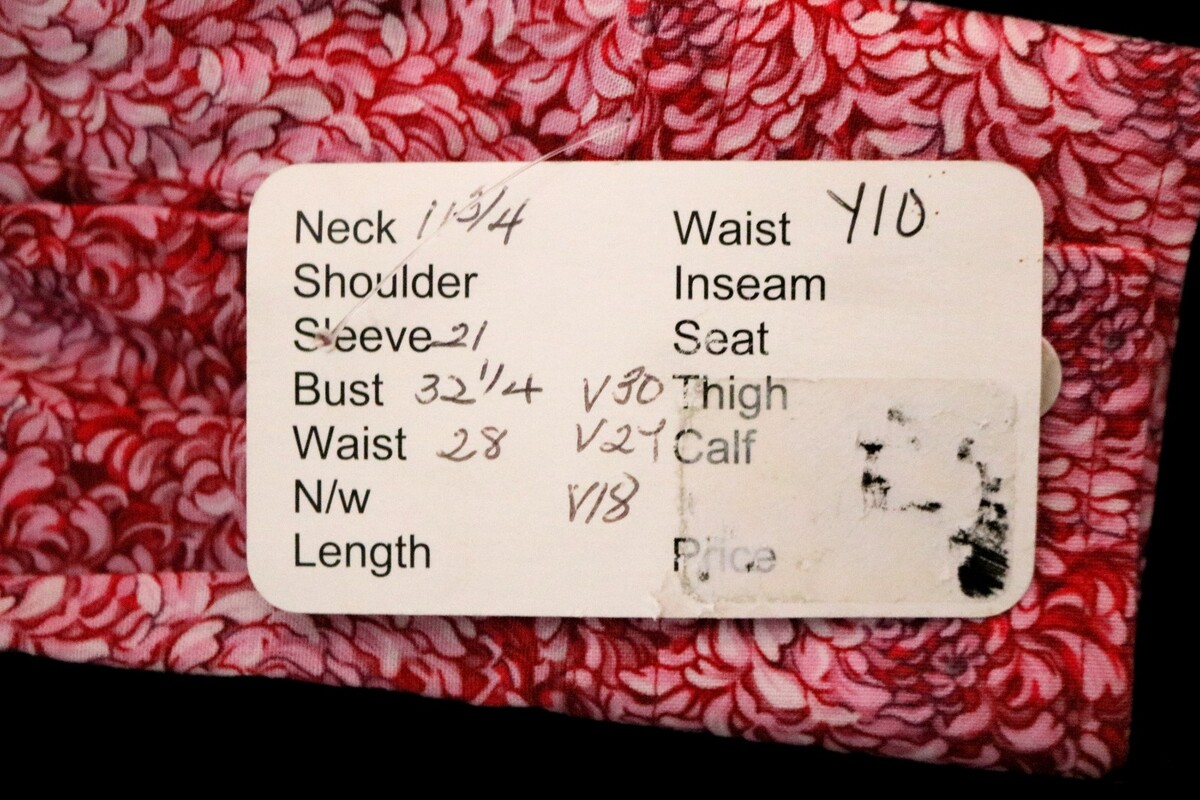 Neck 11 3/4
Shoulder
Sleeve 21
Bust 32 1/4 V30
Waist 28
N/w V18
Length
Waist Y10
Inseam
Seat
Thigh
Calf
Price